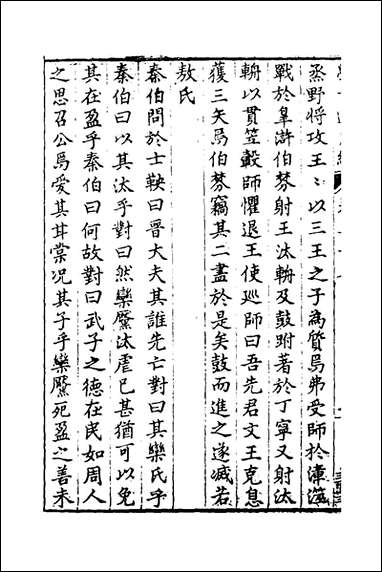 烝野將攻王〻以三王之子為質焉弗受師於漳澨
戰於皐滸伯棼射王汰輈及鼓跗著於丁寧又射汰
輈以貫笠轂師懼退王使廵師曰吾先君文王克息
獲三矢焉伯棼竊其二盡於是矣鼓而進之遂滅若
敖氏
秦伯問於士鞅曰晉大夫其誰先亡對曰其欒氏乎
秦伯曰以其汰乎對曰然欒黶汰虐已甚猶可以免
其在盈乎秦伯曰何故對曰武子之德在民如周人
之思召公焉愛其甘棠况其子乎欒黶死盈之善未